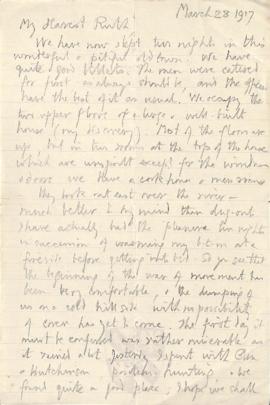 March 28 1917
My dearest Ruth
We have now slept two nights in this
wonderful & pitiful old town. We have
quite good billets. The men were catered
for first as always should be, and the officers
have the best of it as usual. We occupy the
two upper floors of a large & well-built
house (my discovery). Most of the floors are
up, but in two rooms at the top of the house
which are unspoilt except for the windows
& doors we have a cook house & mess room
much better to my mind than dug-outs
I have actually had the pleasure two nights
in succession of warming my bum at a
fireside before getting into bed. So you see that
the beginning of the war of movement has
been very comfortable & the dumping of
us on a cold hillside with no possibility
of cover has yet to come. The first day it
must be confessed was rather miserable as
it rained a lot. Yesterday I spent with
& Hutchinson position hunting & we
found quite a good place; I hope we shall